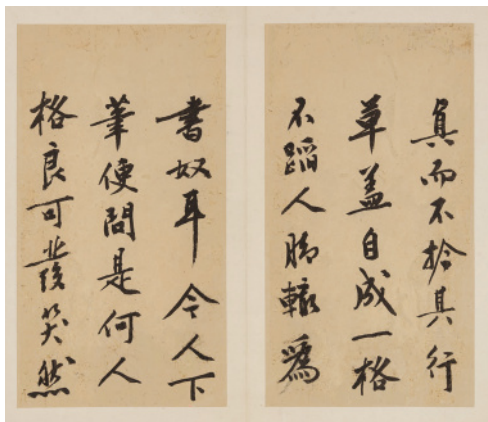 真而不拾其行
草盖自成一格
不蹈人腳轍爲
書奴耳今人下
筆便問是何人
格良可發笑然